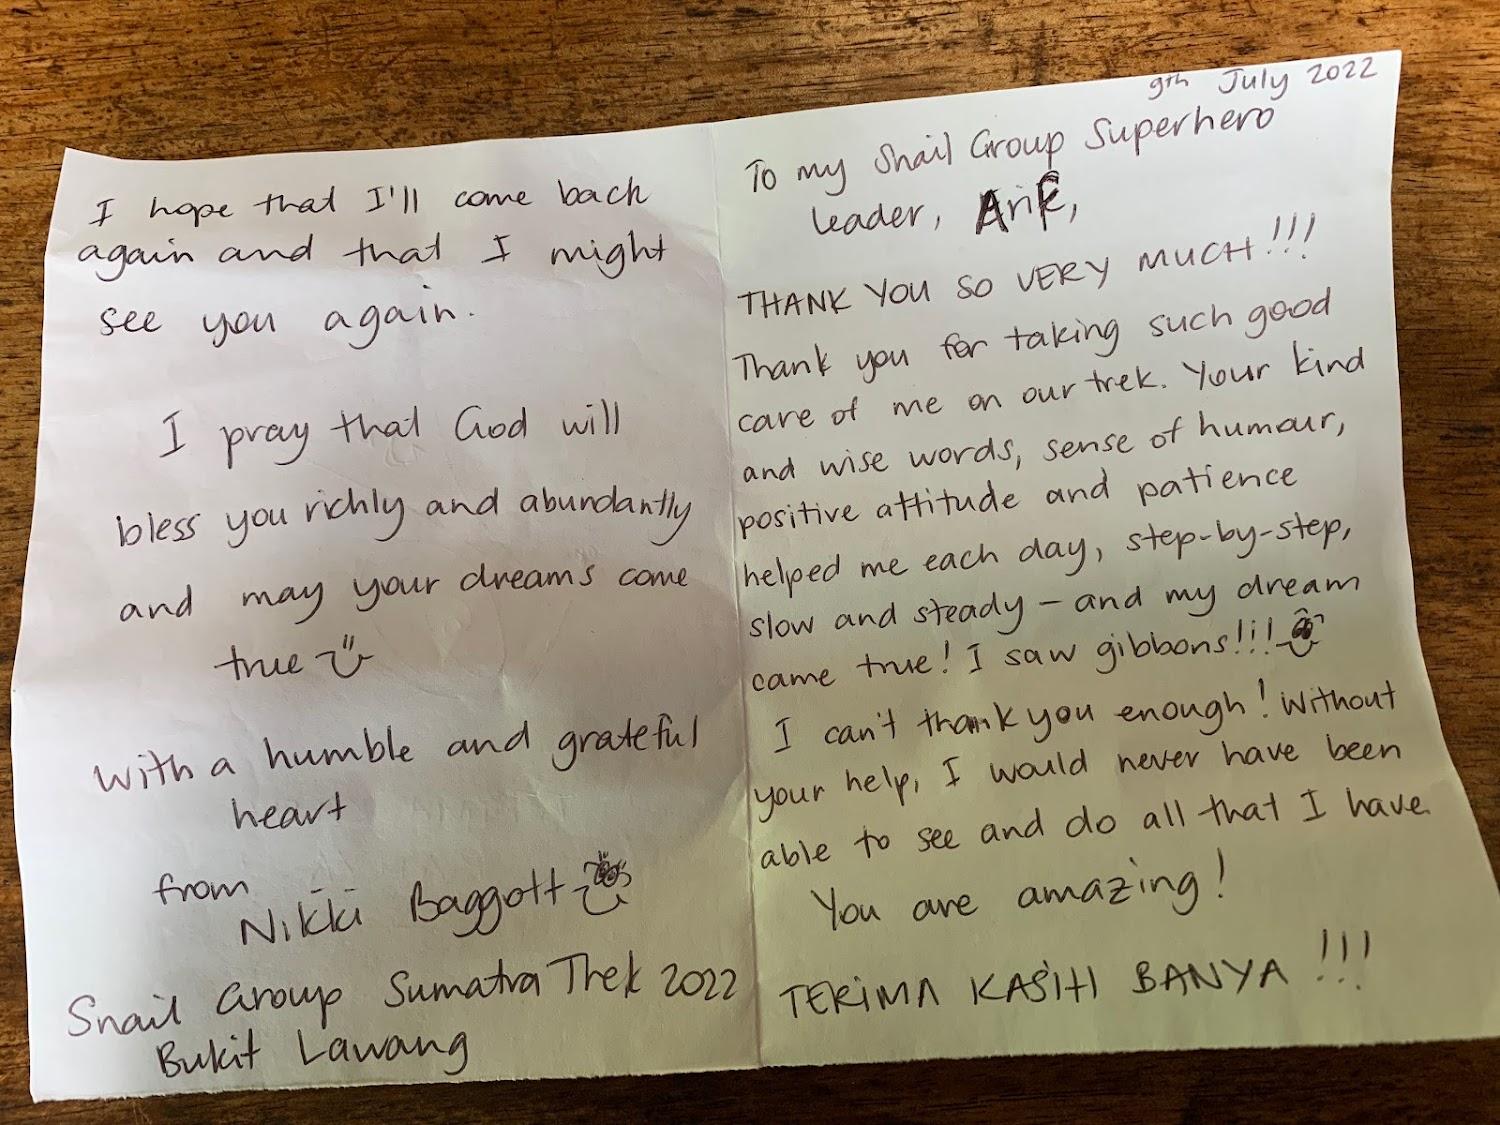 9th July 2022
To my Snail Group Superhero
leader, Arif,
THANK YOU SO VERY MUCH!!!
Thank you for taking such good
care of me on our trek. Your kind
and wise words, sense of humour,
positive attitude and patience
helped me each day, step-by-step,
slow and steady – and my dream
came true! I saw gibbons!!!
I can't thank you enough! Without
your help, I would never have been
able to see and do all that I have.
You are amazing!
TERIMA KASIH BANYA !!!
I hope that I'll come back
again and that I might
see you again.
I pray that God will
bless you richly and abundantly
and may your dreams come
true
With a humble and grateful
heart
from
Nikki Baggott
Snail Group Sumatra Trek 2022
Bukit Lawang